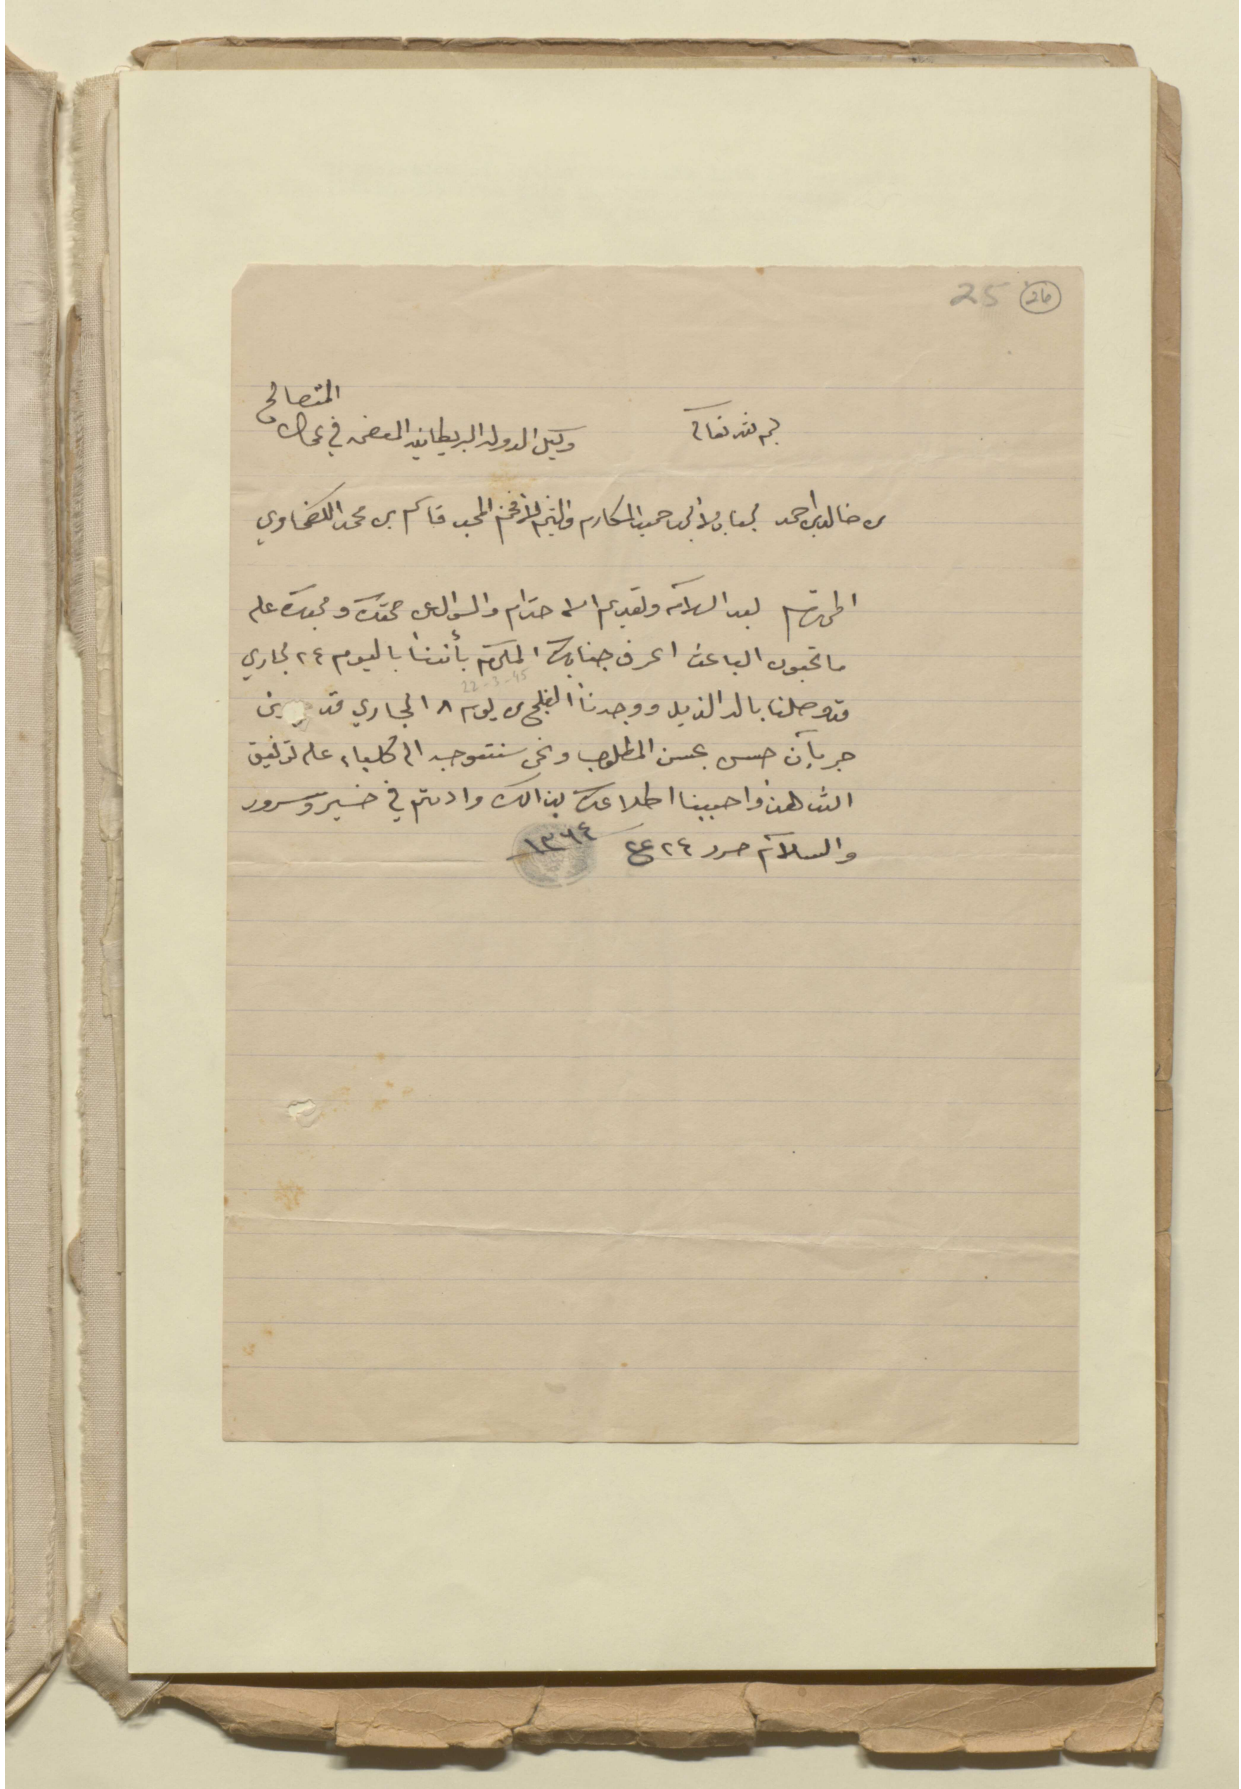 25 26
بسم الله تعالى
وكيل الدولة البريطانية المعظمه في عمان المتصالح
من خالد بن احمد لجناب الأجل حميد المكارم والشيم الأفخم المحب قاسم بن محمد
المحترم بعد السلام وتقديم الاحترام والسؤال عن صحتك ومحبك على
ما تحبون الباعث اعرف جنابك المكرم بأننا باليوم ٢٤ الجاري
22-3-45
قد وصلنا بالد الذيد ووجدنا الفلج من يوم ٨ الجاري قد
جريان حسن بحسن المطلوب ونحن سنتوجه الى كلباء على توفيق
الله واحببنا اطلاعك بذالك وادمتم في خير وسرور
والسلام حرر ٢٤ ١٣٦٤